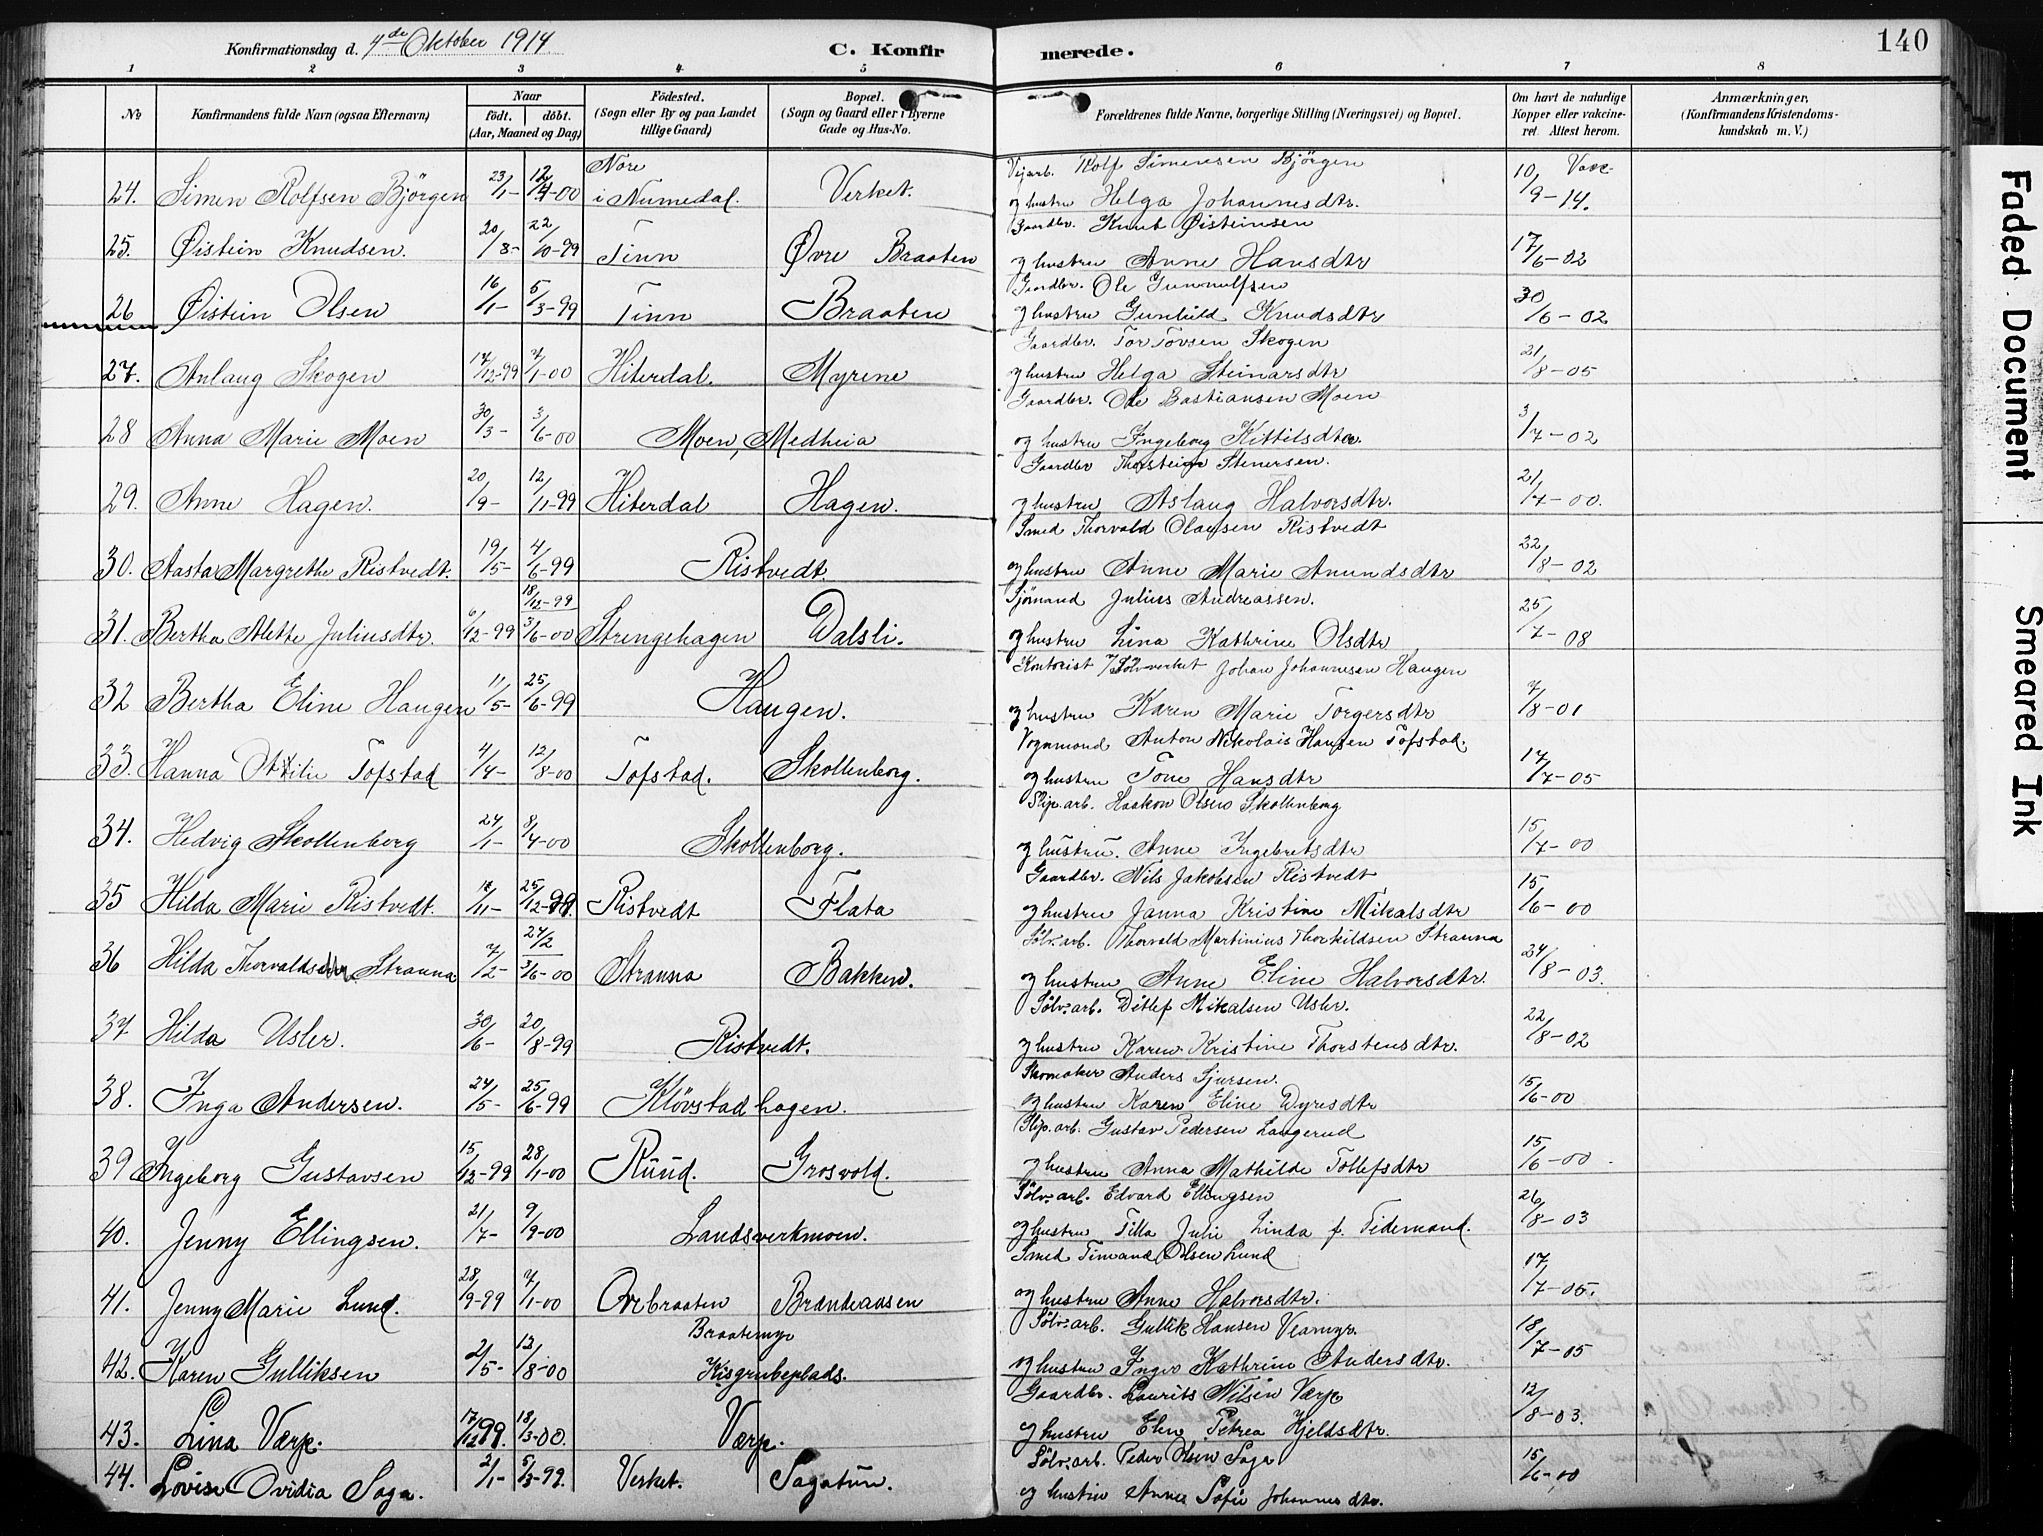 Konfirmationsdag d. 4de Oktober 1914
C. Konfirmerede.
140
1 2 3 4 5 6 7 8
No
Konfirmandens fulde Navn (ogsaa Efternavn)
Naar
født. døbt.
(Aar, Maaned og Dag)
Fødested.
(Sogn eller By og paa Landet tillige Gaard)
Bopæl.
(Sogn og Gaard eller i Byerne Gade og Hus-No.
Forældrenes fulde Navne, borgerlige Stilling (Næringsvei) og Bopæl.
Om havt de naturlige Kopper eller vaccineret. Attest herom.
Anmærkninger.
(Konfirmandens Kristendomskundskab m. V.)
24. Simen Rolfsen Björgen 23/1- 12/4-00 Nore i Numedal. Verket. Vejarb. Rolf Simensen Björgen 10/9-14. Vacc.
og hustru Helga Johannesdtr.
25. Øistein Knudsen. 20/8- 22/10-99 Tinn Øvre Braaten Gaardbr. Knut Øisteinsen 17/6-02
og hustru Anne Hansdtr
26 Øistein Olsen 16/1- 5/3-99 Tinn Braaten Gaardbr. Ole Gunnulfsen 30/6-02
og hustru Gunhild Knudsdtr
27. Anlaug Skogen 17/12-99 7/1-00 Hiterdal. Myrene Gaardbr. Tor Tovsen Skogen 21/8-05
og hustru Helga Steinarsdtr
28 Anna Marie Moen 30/3- 3/6-00 Moen, Medheia Gaardbr. Ole Bastiansen Moen 3/7-02
og hustru Ingeborg Kittilsdtr.
29. Anne Hagen. 20/9- 12/11-99 Hiterdal Hagen. Gaardbr Thorstein Stenersen. 21/7-00.
og hustru Aslaug Halvorsdtr.
30. Aasta Margrethe Ristvedt. 19/5- 4/6-99 Ristvedt. Smed Thorvald Olausen Ristvedt 22/8-02
og hustru Anne Marie Anundsdtr
31. Bertha Alette Juliusdtr. 6/12-99 18/12-99 3/6-00 Strengehagen Dalsli. Sjömand Julius Andreassen. 25/7-08
og hustru Lina Kathrine Olsdtr
32 Bertha Eline Haugen 11/5- 25/6-99 Haugen. Kontorist v/Sölvverket Johan Johannesen Haugen 7/8-01
og hustru Karen Marie Torgersdtr
33. Hanna Ottilie Tofstad 4/4- 12/8-00 Tofstad. Skollenborg. Vognmand Anton Nikolais Hansen Tofstad. 17/7-05
og hustru Tone Hansdtr
34. Hedvig Skollenborg 24/1- 8/4-00 Skollenborg. Slip.arb. Haakon Olsen Skollenborg 15/7-00
og hustru. Anne Ingebretsdtr
35 Hilda Marie Ristvedt. 17/11- 25/12-99. Ristvedt Flata Gaardbr. Nils Jakobsen Ristvedt 15/6-00
og hustru Janna Kristine Mikalsdtr
36 Hilda Thorvaldsdtr Stranna 7/2- 24/2 3/6-00 Stranna Bakken. Sölv.arb. Thorvald Martinius Thorkildsen Stranna 24/8-03.
og hustru Anne Eline Halvorsdtr.
37. Hilda Usler. 30/6- 20/8-99 Ristvedt. Sölv.arb. Ditlef Mikalsen Usler. 22/8-02
og hustru Karen Kristine Thorstensdtr.
38. Inga Andersen. 24/5- 25/6-99 Klövstadhagen. Skomaker Anders Sjursen. 15/6-00
og hustru Karen Eline Dyresdtr
39 Ingeborg Gustavsen 15/12-99 28/1-00 Ruud. Grosvold. Slip.arb. Gustav Pedersen Langerud 15/6-00
og hustru Anna Mathilde Tollefsdtr
40. Jenny Ellingsen. 21/7- 9/9-00 Landsverkmoen. Sölv.arb. Edvard Ellingsen 26/8-03
og hustru Tilla Julie Linda f. Tidemand.
41. Jenny Marie Lund. 28/9-99 7/1-00 Ovrebraaten Brændeaasen Smed Timand Olsen Lund 17/7-05.
og hustru Anne Halvorsdtr.
42. Karen Gulliksen 2/5- 12/8-00 Braatemyr Kisgrubeplads. Sölv.arb. Gullik Hansen Veamyr. 18/7-05
og hustru Inger Kathrine Andersdtr.
43. Lina Værp. 17/12 99. 18/3-00. Værp. Gaardbr. Laurits Nilsen Værp 12/8-03.
og hustru Elen Petrea Hjeldsdtr.
44. Lovise Ovidia Saga. 2/1- 5/3-99. Verket. Sagatun. Sölv.arb. Peder Olsen Saga 15/6-00
og hustru Anne Sofie Johannesdtr.
Faded Document
Smeared Ink